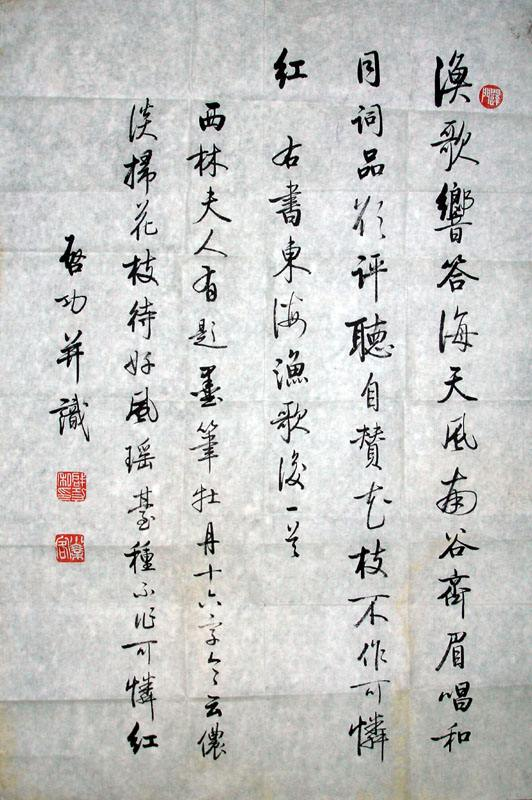 漁歌響答海天風南谷齊眉唱和
同詞品欲評聽自贊花枝不作可憐
紅 右書東海漁歌後一首
西林夫人有題墨筆牡丹十六字令云儂
淡掃花枝待好風瑤臺種不作可憐紅
啓功并識